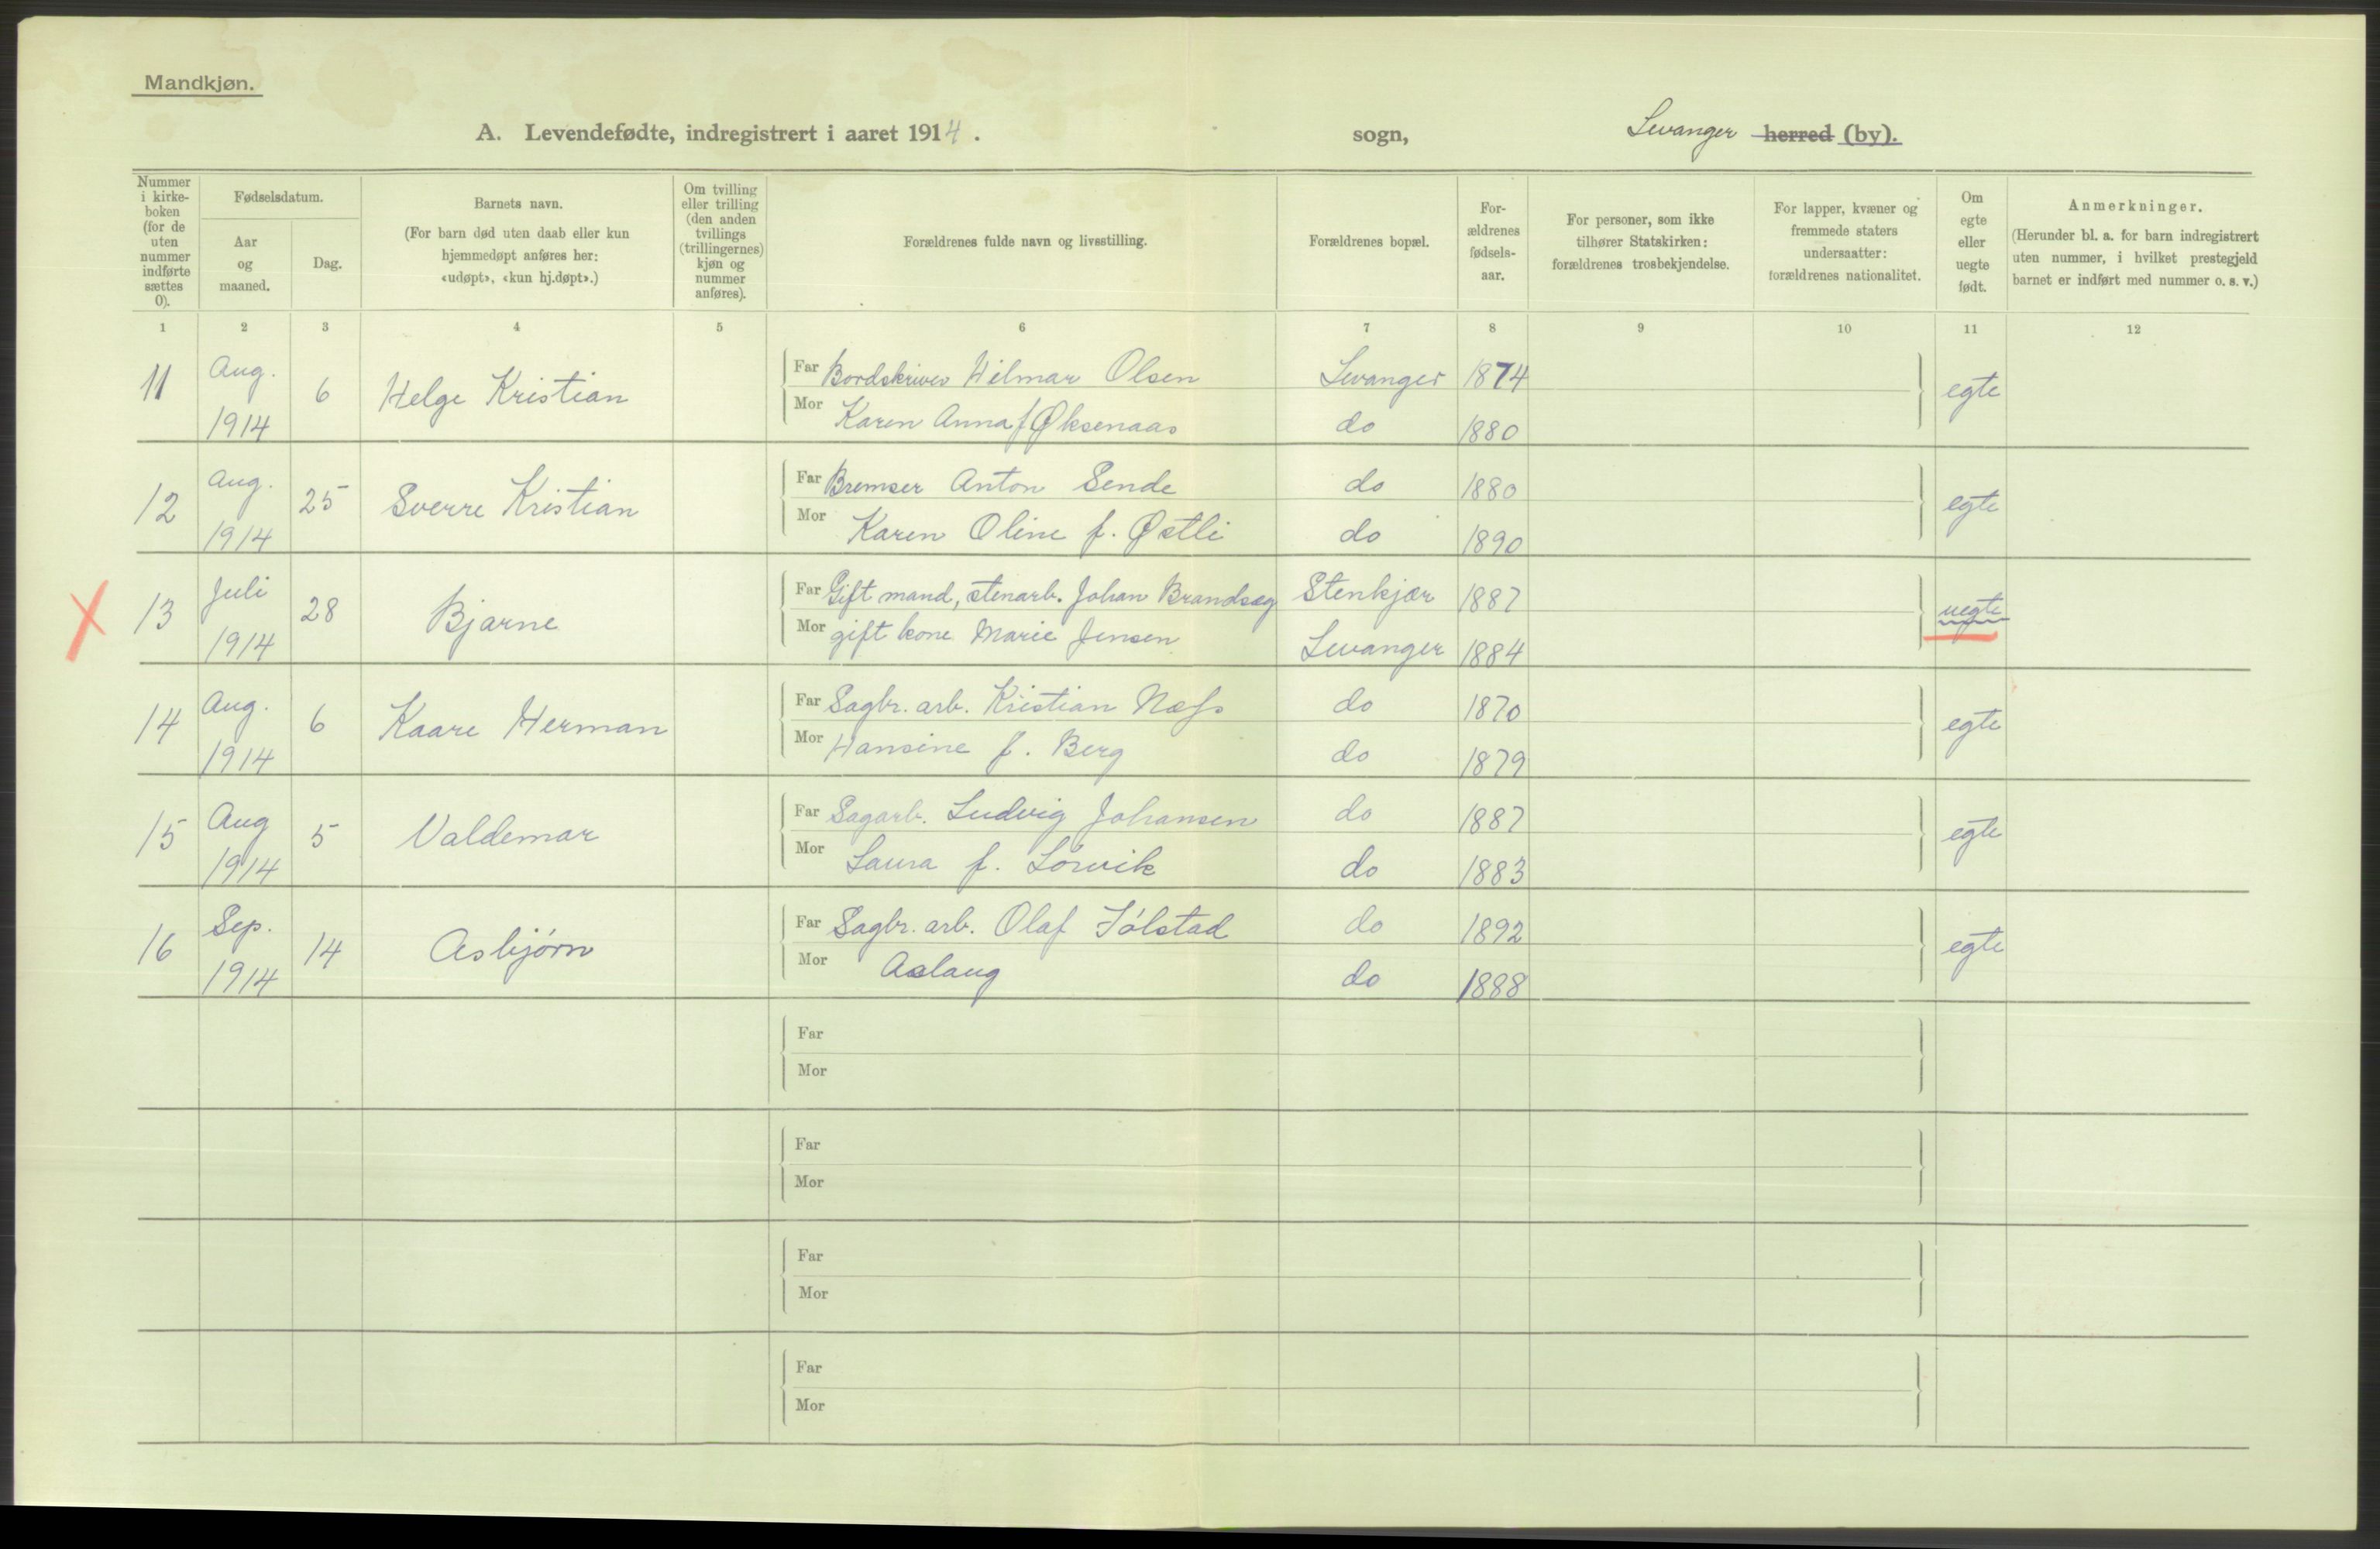 Mandkjøn.
A. Levendefødte, indregistrert i aaret 1914. sogn, Levanger herred (by).
Nummer i kirke-boken (for de uten nummer indførte sættes 0).
Fødselsdatum.
Aar og maaned.
Dag.
Barnets navn.
(For barn død uten daab eller kun hjemmedøpt anføres her: «udøpt», «kun hj.døpt».)
Om tvilling eller trilling (den anden tvillings (trillingernes) kjøn og nummer anføres).
Forældrenes fulde navn og livsstilling.
Forældrenes bopæl.
For-ældrenes fødsels-aar.
For personer, som ikke tilhører Statskirken: forældrenes trosbekjendelse.
For lapper, kvæner og fremmede staters undersaatter: forældrenes nationalitet.
Om egte eller uegte født.
Anmerkninger.
(Herunder bl. a. for barn indregistrert uten nummer, i hvilket prestegjeld barnet er indført med nummer o. s. v.)
1 2 3 4 5 6 7 8 9 10 11 12
11 Aug. 1914 6 Helge Kristian
Far Bordskriver Hilmar Olsen Levanger 1874
Mor Karen Anna f Øksenaas do 1880
egte
12 Aug. 1914 25 Sverre Kristian
Far Bremser Anton Sende do 1880
Mor Karen Oline f. Østli do 1890
egte
X 13 Juli 1914 28 Bjarne
Far Gift mand, stenarb. Johan Brandsæg Stenkjær 1887
Mor gift kone Marie Jensen Levanger 1884
uegte
14 Aug. 1914 6 Kaare Herman
Far Sagbr. arb. Kristian Næss do 1870
Mor Hansine f. Berg do 1879
egte
15 Aug 1914 5 Valdemar
Far Sagarb. Ludvig Johansen do 1887
Mor Laura f. Lorvik do 1883
egte
16 Sep. 1914 14 Asbjørn
Far Sagbr. arb. Olaf do 1892
Mor Aslaug do 1888
egte
Far
Mor
Far
Mor
Far
Mor
Far
Mor